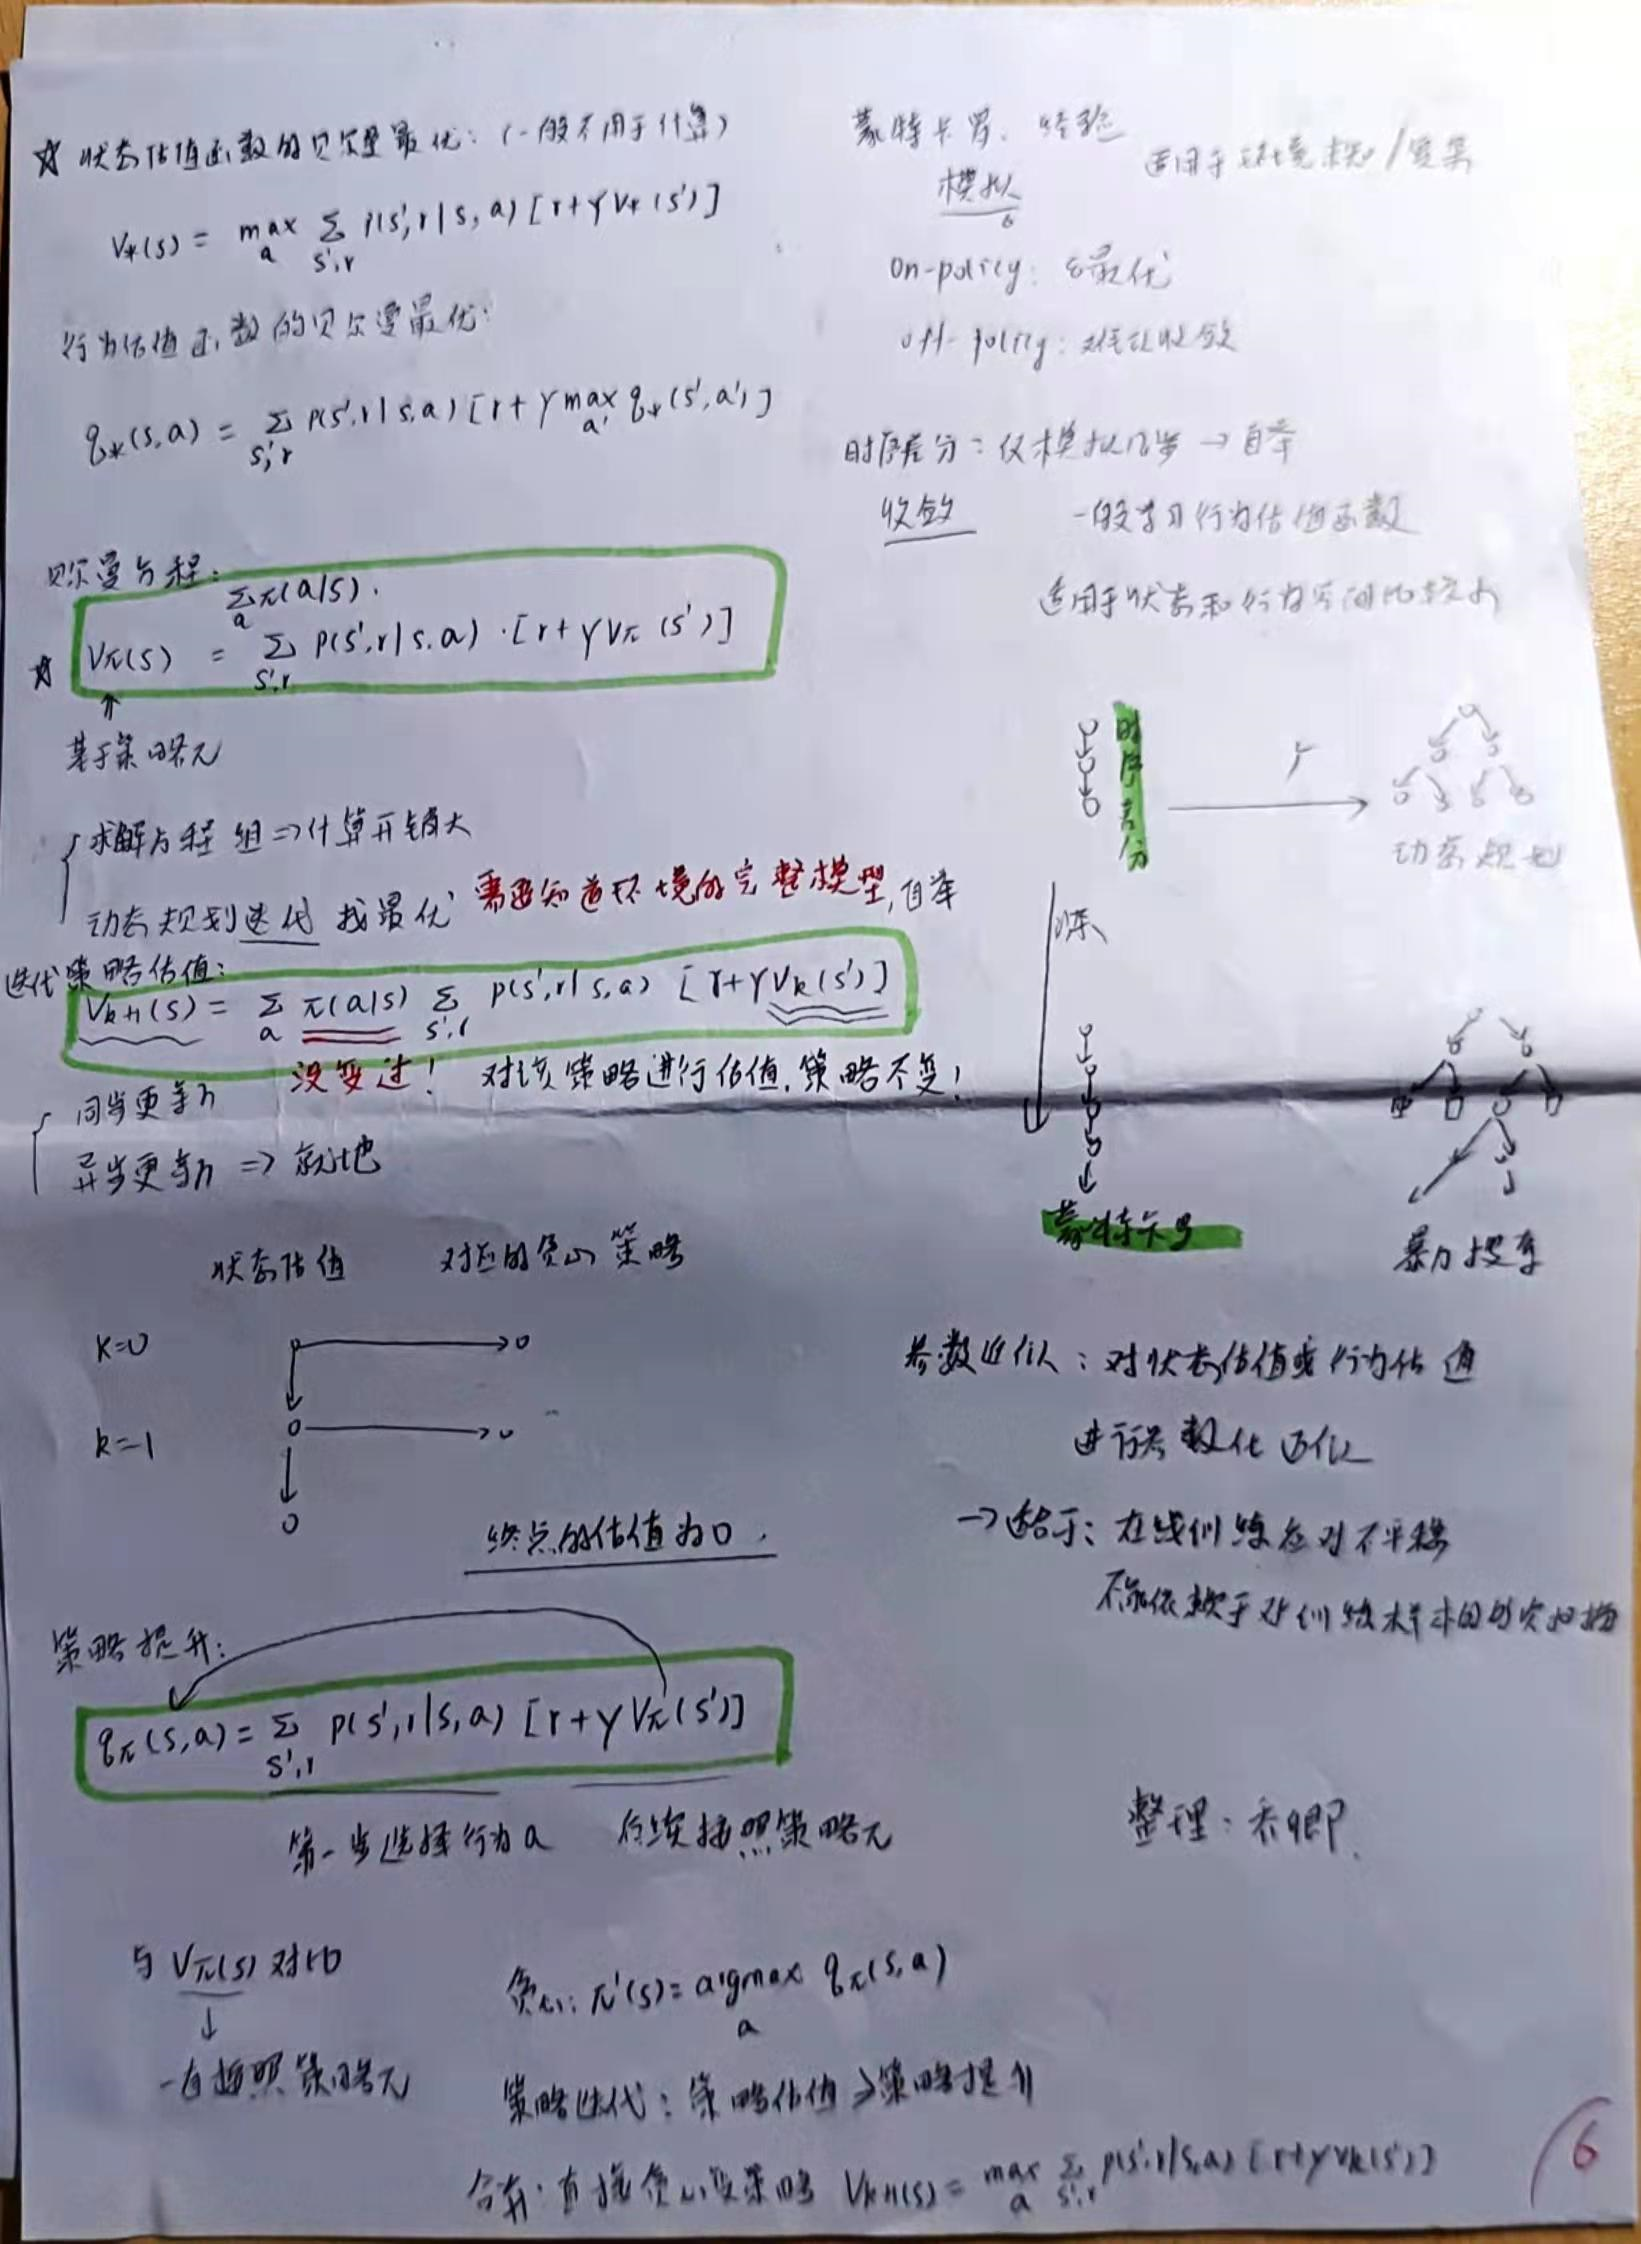 ☆ 状态估值函数的贝尔曼最优：（一般不用于计算）
V*(s) = max_a Σ_{s',r} p(s',r|s,a)[r+γV*(s')]
行为估值函数的贝尔曼最优：
q*(s,a) = Σ_{s',r} p(s',r|s,a)[r+γ max_{a'} q*(s',a')]
贝尔曼方程：
Σ_a π(a|s)·
☆ Vπ(s) = Σ_{s',r} p(s',r|s,a)·[r+γVπ(s')]
↑
基于策略π
求解方程组⇒计算开销大
动态规划迭代 找最优 需要知道环境的完整模型,自举
迭代策略估值：
V_{k+1}(s) = Σ_a π(a|s) Σ_{s',r} p(s',r|s,a) [r+γV_k(s')]
没变过！ 对该策略进行估值，策略不变！
同步更新
异步更新 ⇒ 就地
状态估值 对应的贪心策略
k=0
k=1
终点的估值为0.
策略提升：
qπ(s,a) = Σ_{s',r} p(s',r|s,a) [r+γVπ(s')]
第一步选择行为a 后续按照策略π
与Vπ(s)对比
↓
一直按照策略π
贪心：π'(s)=argmax_a qπ(s,a)
策略迭代：策略估值→策略提升
合并：直接贪心 策略 V_{k+1}(s) = max_a Σ_{s',r} p(s',r|s,a)[r+γV_k(s')]
蒙特卡罗. 经验
模拟
适用于环境未知/复杂
on-policy: ε最优
off-policy:
时序差分：仅模拟几步→自举
收敛
一般学习行为估值函数
适用于状态和行为空间比较大
时序差分
动态规划
深
蒙特卡罗
暴力搜索
参数近似：对状态估值或行为估值
进行参数化近似
→适合于：在线训练应对不平稳
不能依赖于对训练样本的多次扫描
整理：
6